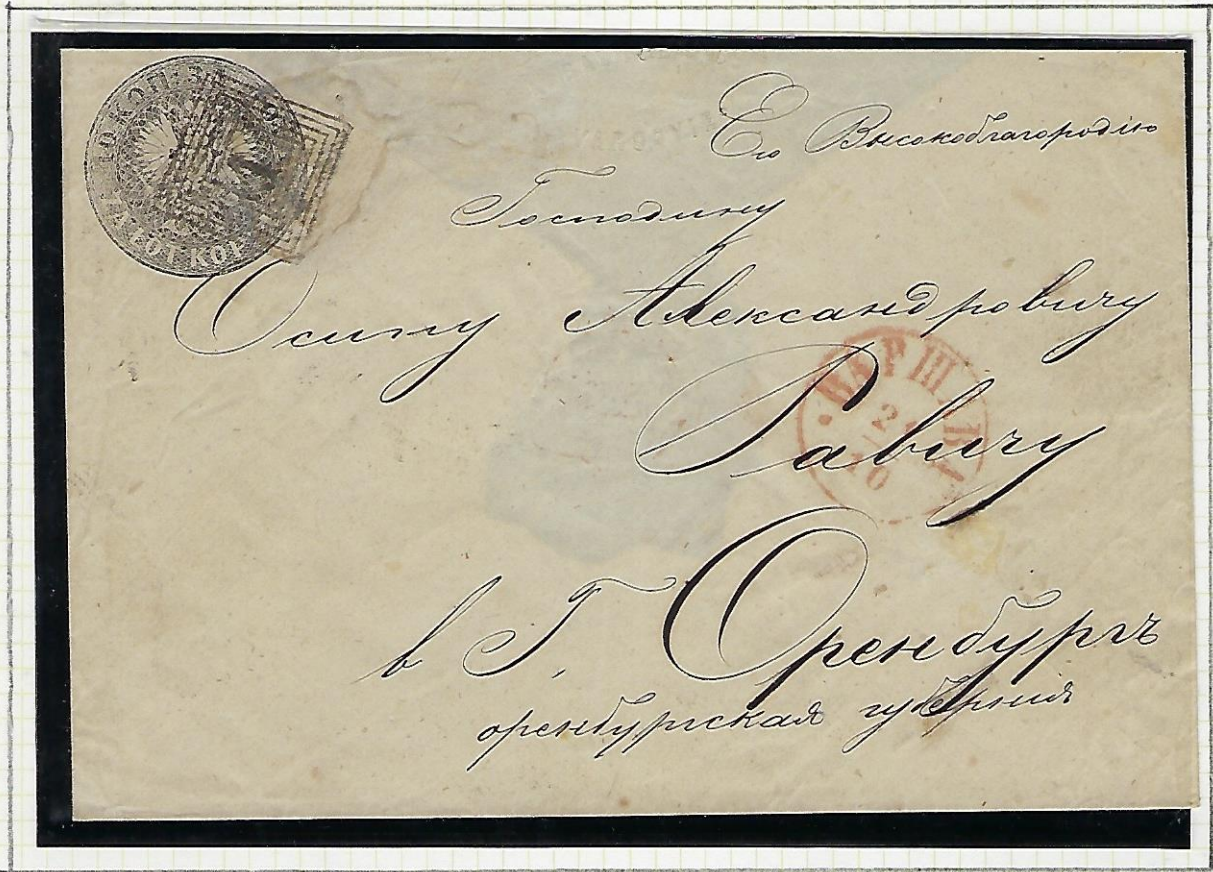 10 КОП: ЗА ЛОТ
10 КОП
Его Высокоблагородію
Господину
Осипу Александровичу
Равичу
ВАРШАВА
10
в Г. Оренбургъ
оренбургская губернія